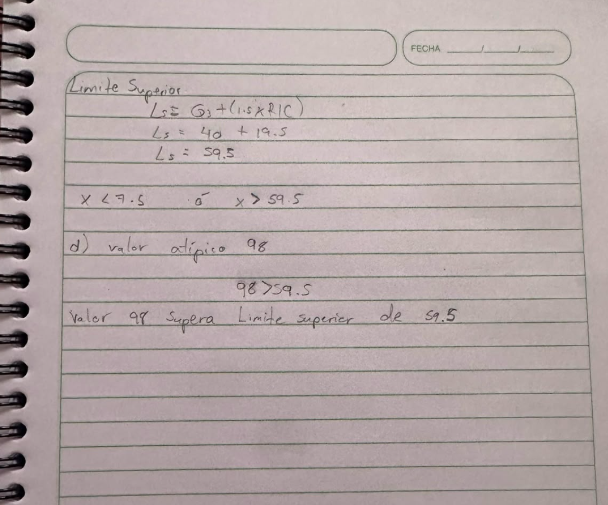 FECHA / /
Limite Superior
Ls = Q3 + (1.5 x RIC)
Ls = 40 + 19.5
Ls = 59.5
x < 7.5 ó x > 59.5
d) valor atípico 98
98 > 59.5
Valor 98 Supera Limite superior de 59.5